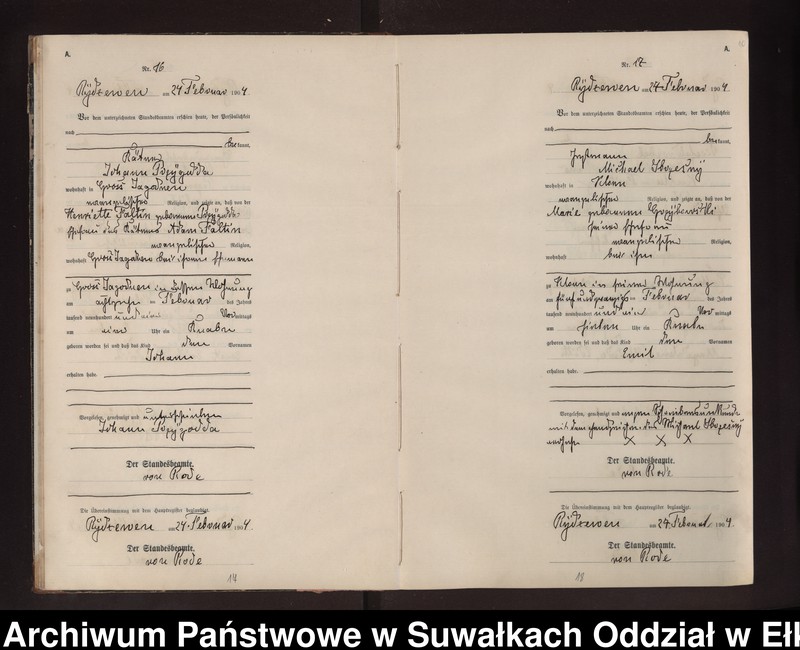 A.
Nr. 16
Rydzewen am 24 Februar 1904
Vor dem unterzeichneten Standesbeamten erschien heute, der Persönlichkeit
nach
bekannt,
Johann
wohnhaft in Gross Jagodnen
evangelischer Religion, und zeigte an, daß von der
Henriette Faltin geborene
Ehefrau des Kätners Adam Faltin
evangelischer Religion,
wohnhaft Gross Jagodnen bei ihrem Ehemann
zu Gross Jagodnen in Wohnung
am Februar des Jahres
tausend neunhundert und vier Vormittags
um ein Uhr ein Knabe
geboren worden sei und daß das Kind den Vornamen
Johann
erhalten habe.
Vorgelesen, genehmigt und unterschrieben
Johann
Der Standesbeamte.
von Rode
Die Übereinstimmung mit dem Hauptregister beglaubigt.
Rydzewen am 24. Februar 1904.
Der Standesbeamte.
von Rode
14
A.
Nr. 17
Rydzewen am 24. Februar 1904
Vor dem unterzeichneten Standesbeamten erschien heute, der Persönlichkeit
nach
bekannt,
Michael
wohnhaft in
evangelischer Religion, und zeigte an, daß von der
Marie geborenen
seiner Ehefrau
evangelischer Religion,
wohnhaft bei ihm
zu in seiner Wohnung
am Februar des Jahres
tausend neunhundert und vier Vormittags
um sieben Uhr ein Knabe
geboren worden sei und daß das Kind den Vornamen
Emil
erhalten habe.
Vorgelesen, genehmigt und wegen Schreibensunkunde
mit dem Handzeichen des Michael
versehen X X X
Der Standesbeamte.
von Rode
Die Übereinstimmung mit dem Hauptregister beglaubigt.
Rydzewen am 24. Februar 1904.
Der Standesbeamte.
von Rode
18
Archiwum Państwowe w Suwałkach Oddział w Ełk